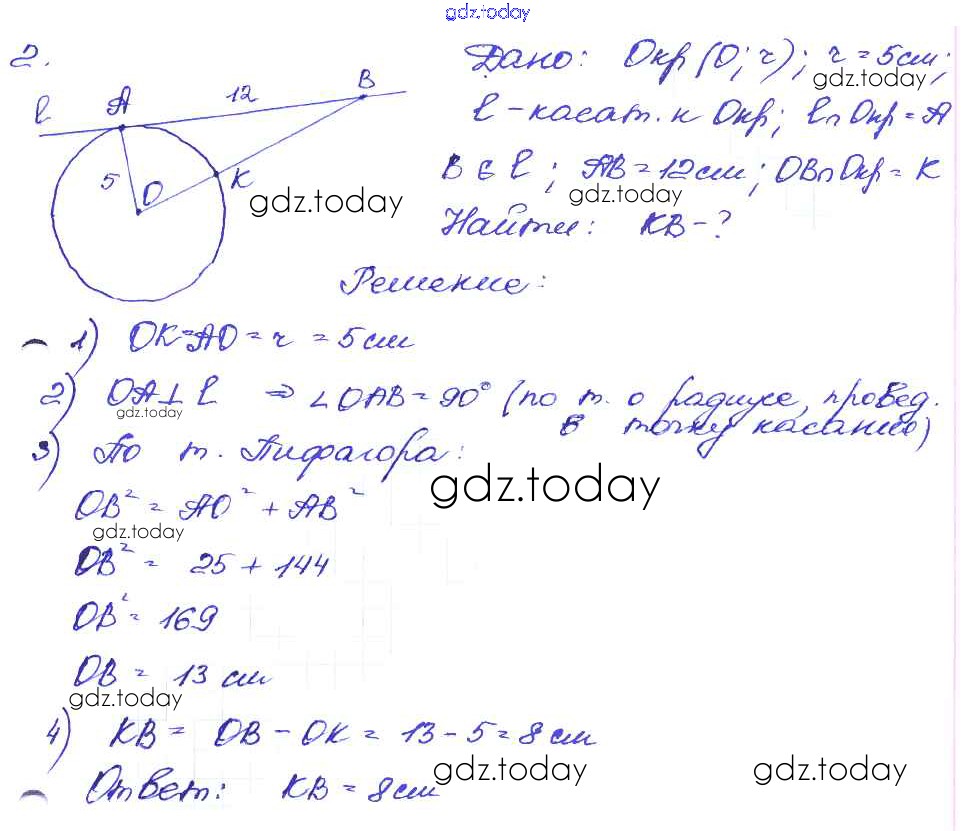 gdz.today
2.
l A 12 B
5 O K
Дано: Окр (O; r); r = 5 см;
gdz.today
l - касат. к Окр; l ∩ Окр = A
B ∈ l; AB = 12 см; OB ∩ Окр = K
gdz.today
gdz.today
Найти: KB - ?
Решение:
1) OK = AO = r = 5 см
2) OA ⊥ l ⇒ ∠OAB = 90° (по т. о радиусе, провед.
gdz.today
в точку касания)
3) По т. Пифагора:
gdz.today
OB² = AO² + AB²
gdz.today
OB² = 25 + 144
OB² = 169
OB = 13 см
gdz.today
4) KB = OB - OK = 13 - 5 = 8 см
gdz.today gdz.today
Ответ: KB = 8 см